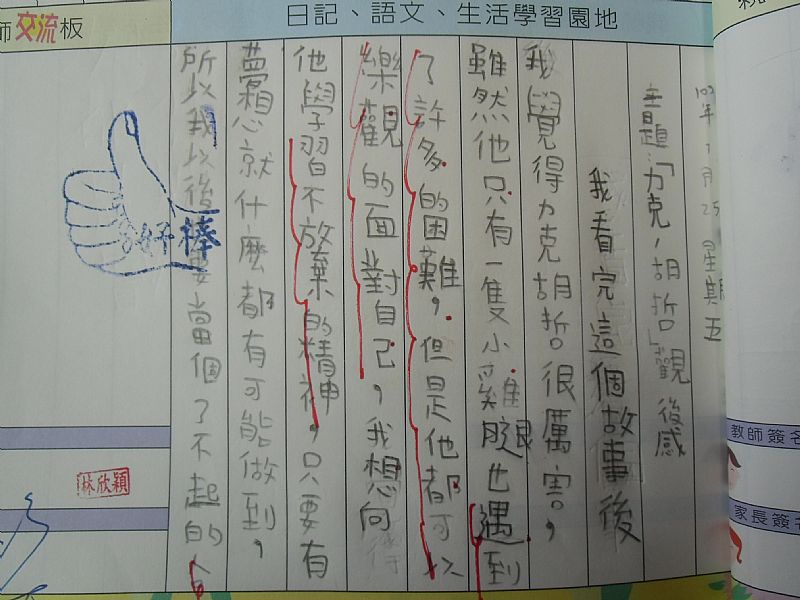 日記、語文、生活學習園地
師交流板
102年1月25星期五
主題:「力克,胡哲」觀後感
我看完這個故事後
我覺得力克胡哲很厲害,
雖然他只有一隻小雞腿也遇到
了許多的困難,但是他都可以
樂觀的面對自己,我想向
他學習不放棄的精神,只要有
夢想就什麼都有可能做到,
所以我以後要當個了不起的人
好棒
林欣穎
教師簽名
家長簽名